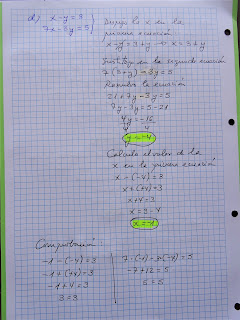 d) x-y=3
7x-3y=5
Despejo la x en la
primera ecuación
x-y=3+y → x=3+y
Sustituyo en la segunda ecuación
7(3+y)-3y=5
Resuelvo la ecuación
21+7y-3y=5
7y-3y=5-21
4y=-16
y=-4
Calculo el valor de la
x en la primera ecuación
x-(-4)=3
x+(+4)=3
x+4=3
x=3-4
x=-1
Comprobación:
-1-(-4)=3
-1+(+4)=3
-1+4=3
3=3
7·(-1)-3·(-4)=5
-7+12=5
5=5